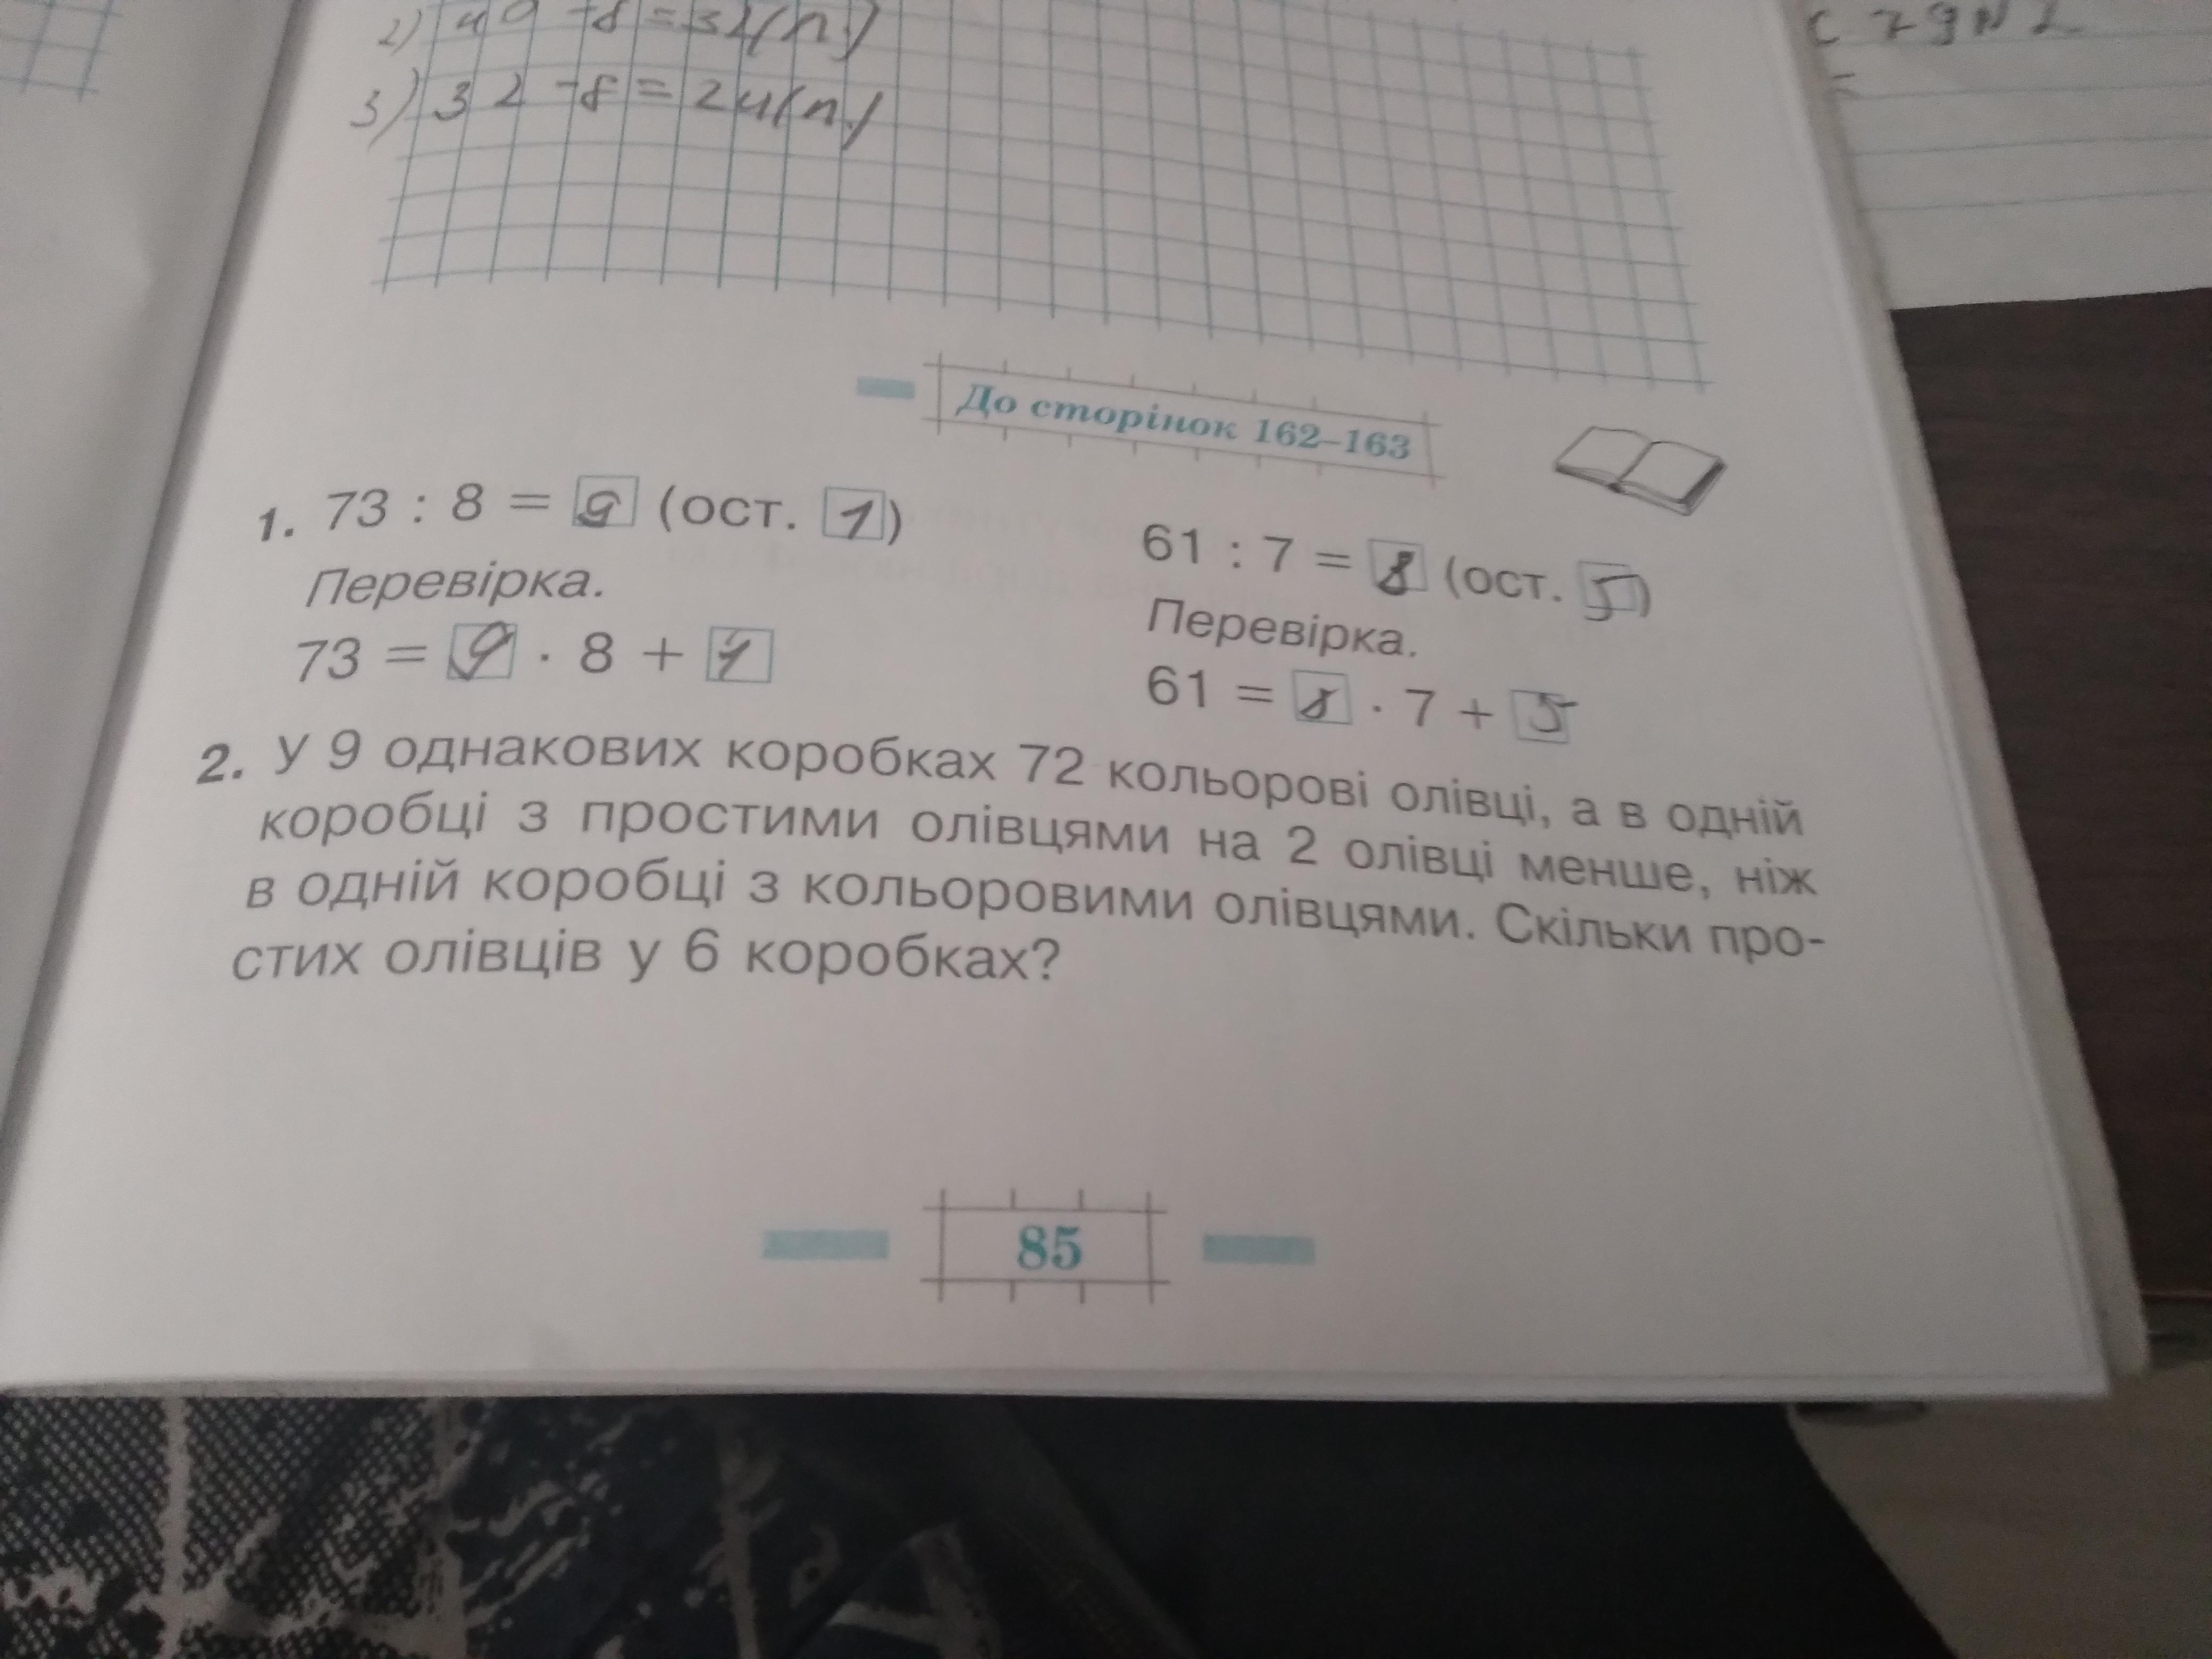 2) 40 -8 = 32(п.)
3) 32 -8 = 24(п.)
До сторінок 162–163
1. 73 : 8 = 9 (ост. 1)
Перевірка.
73 = 9 · 8 + 1
61 : 7 = 8 (ост. 5)
Перевірка.
61 = 8 · 7 + 5
2. У 9 однакових коробках 72 кольорові олівці, а в одній
коробці з простими олівцями на 2 олівці менше, ніж
в одній коробці з кольоровими олівцями. Скільки про-
стих олівців у 6 коробках?
85